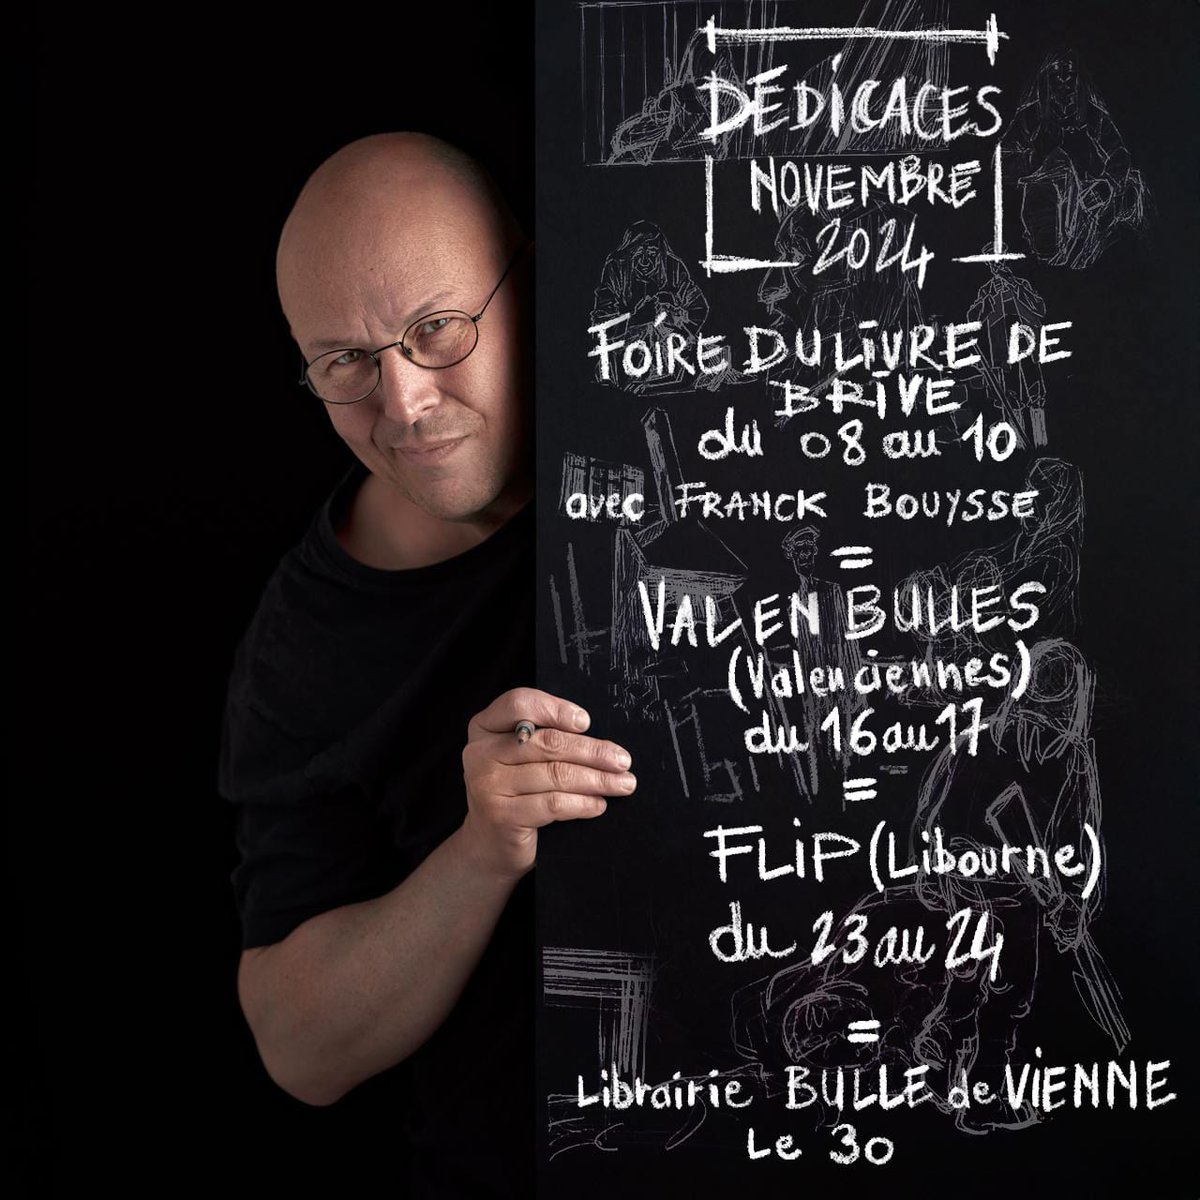 DÉDICACES
NOVEMBRE
2024
FOIRE DU LIVRE DE
BRIVE
du 08 au 10
avec FRANCK BOUYSSE
=
VALEN BULLES
(Valenciennes)
du 16 au 17
=
FLiP (Libourne)
du 23 au 24
=
Librairie BULLE de VIENNE
Le 30